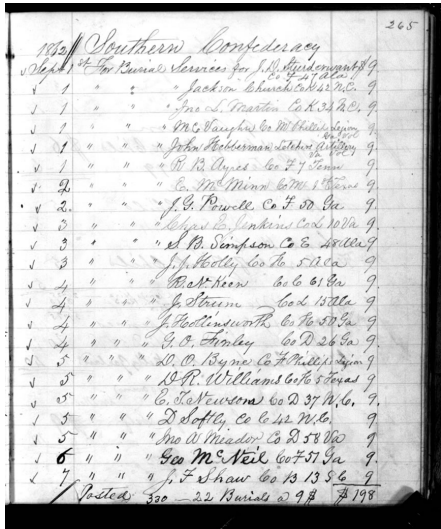 265
1862 Southern Confederacy
Sept 1st For Burial Services for J. D. Sturdervant $ 9.
Co F 47 Ala
✓ 1 " " " Jackson Church Co K 42 N.C. 9.
✓ 1 " " " Jno S. Martin Co K 34 N.C. 9.
✓ 1 " " " M. C. Vaughn Co M Phillips Legion 9.
✓ 1 " " " John Hobberman Letcher Artillery 9.
Va Vol
✓ 1 " " " R. B. Ayres Co F 7 Tenn 9.
✓ 2 " " " E. McMinn Co M 1st Texas 9.
✓ 2. " " " J. G. Powell Co F 50 Ga 9.
✓ 3 " " " Chas E. Jenkins Co L 10 Va 9.
✓ 3 " " " S. B. Simpson Co E 48 Ala 9.
✓ 3 " " " J. J. Holly Co H 5 Ala 9.
✓ 4 " " " Co C 61 Ga 9.
✓ 4 " " " J. Co L 15 Ala 9.
✓ 4 " " " J. Hollinsworth Co H 50 Ga 9.
✓ 4 " " " G. O. Finley Co D 26 Ga 9.
✓ 5 " " " D. O. Byne Co F Phillips Legion 9.
✓ 5 " " " D. R. Williams Co H 5 Texas 9.
✓ 5 " " " E. T. Newsom Co D 37 N.C. 9.
✓ 5 " " " D Softly Co C 42 N.C. 9.
✓ 5 " " " Jno A Meador Co D 58 Va 9.
✓ 6 " " " Geo McNeil Co F 51 Ga 9.
✓ 7 " " " J. F Shaw Co B 13 S C 9.
Posted 330 — 22 Burials a 9$ $198